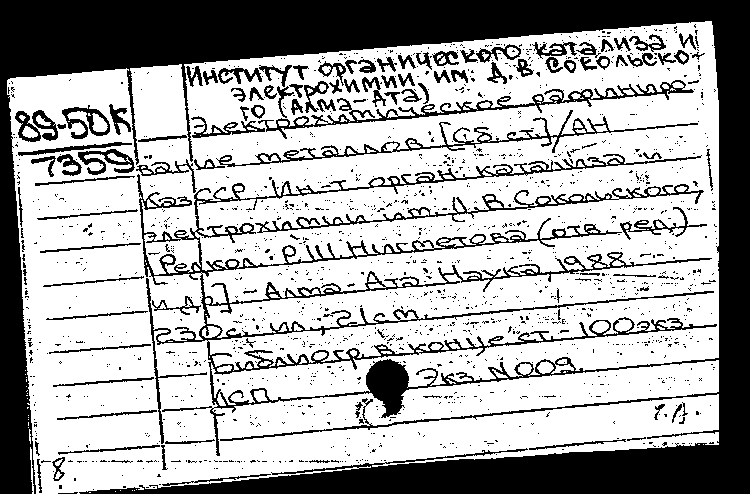 Институт органического катализа и
электрохимии им. Д.В. Сокольско-
го (Алма-Ата)
89-50К
7359
Электрохимическое рафиниро-
вание металлов: [Сб. ст.] / АН
КазССР, Ин-т орган. катализа и
электрохимии им. Д.В. Сокольского;
[Редкол.: Р.Ш. Нигметова (отв. ред.)
и др.]. - Алма-Ата: Наука, 1988. -
230с.: ил.; 21см.
Библиогр. в конце ст. - 100экз.
ДСП. Экз. N009.
8.